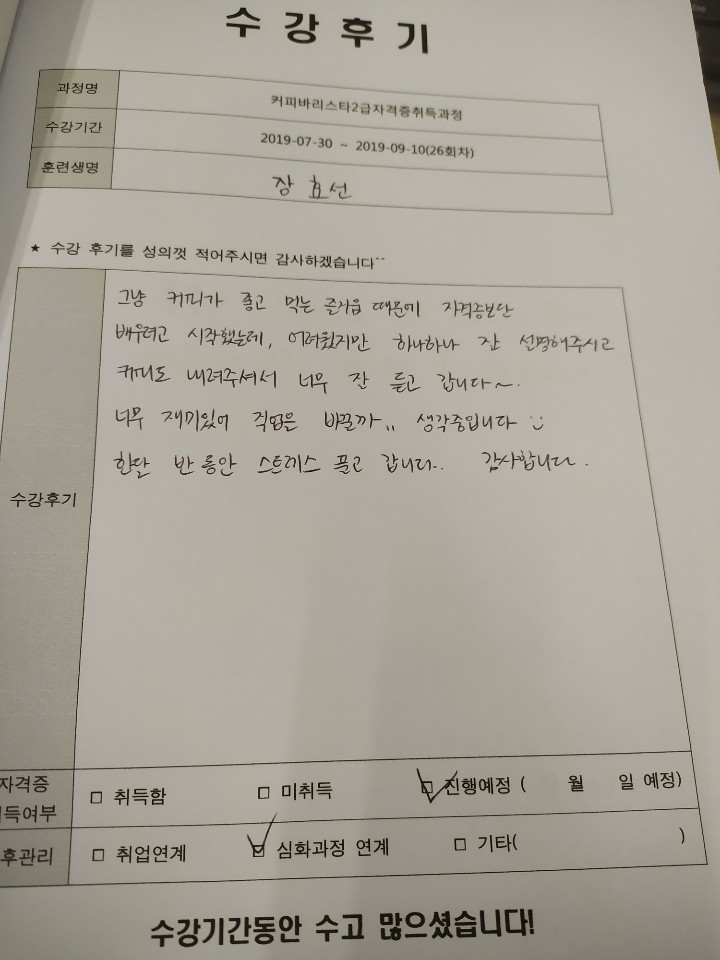 수 강 후 기
과정명 커피바리스타2급자격증취득과정
수강기간 2019-07-30 ~ 2019-09-10(26회차)
훈련생명 장 효선
★ 수강 후기를 성의껏 적어주시면 감사하겠습니다^^
그냥 커피가 좋고 먹는 즐거움 때문에 자격증보단
배우려고 시작했는데, 어려웠지만 하나하나 잘 설명해주시고
커피도 내려주셔서 너무 잘 듣고 갑니다~.
너무 재미있어 직업을 바꿀까,, 생각중입니다 :)
한달 반 동안 스트레스 풀고 갑니다.. 감사합니다.
수강후기
자격증
득여부
□ 취득함 □ 미취득 ☑ 진행예정 ( 월 일 예정)
후관리 □ 취업연계 ☑ 심화과정 연계 □ 기타( )
수강기간동안 수고 많으셨습니다!